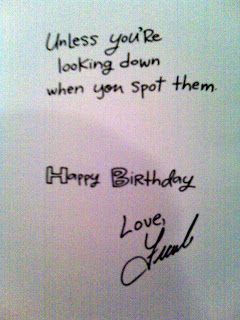 Unless you're
looking down
when you spot them.
Happy Birthday
Love,